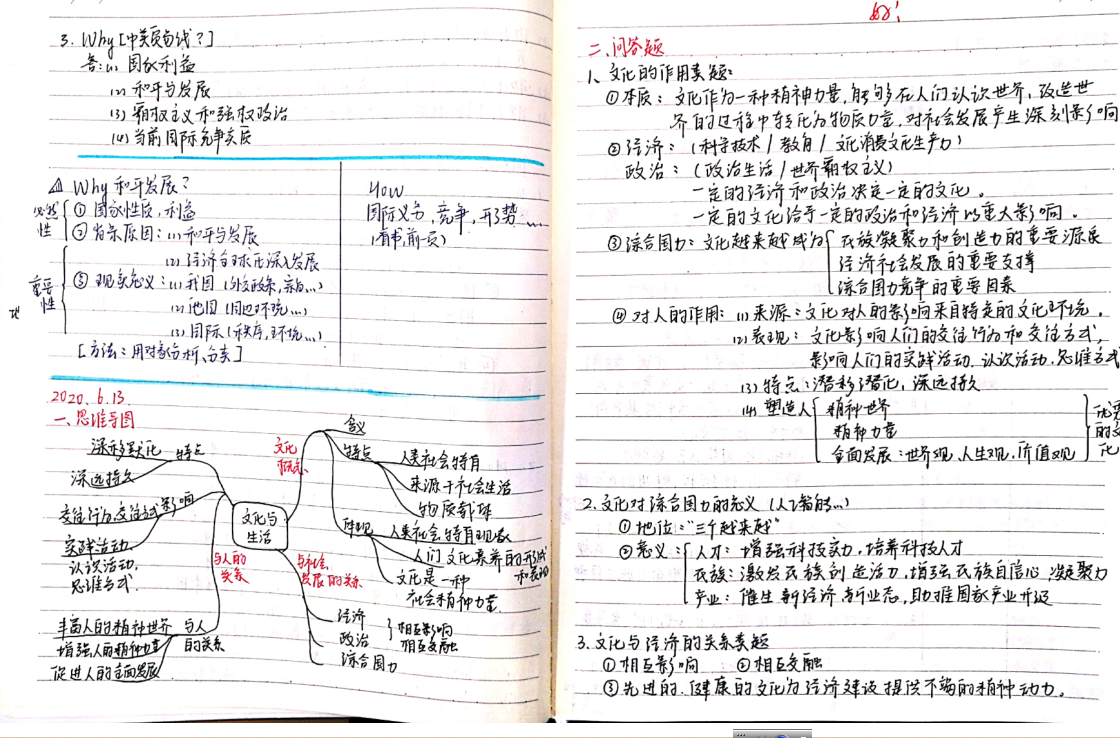 3. Why [中美贸易战?]
答:(1) 国家利益
(2) 和平与发展
(3) 霸权主义和强权政治
(4) 当前国际竞争实质
Why 和平发展?
必然性
① 国家性质,利益
② 背景原因:(1) 和平与发展
(2) 经济全球化深入发展
重要性
③ 现实意义:(1) 我国(外交政策,宗旨...)
(2) 他国(周边环境...)
(3) 国际(秩序,环境...)
[方法:用对象分析、归类]
How
国际义务,竞争,形势...
(有书,前一页)
2020.6.13.
一、思维导图
文化与生活
文化
含义
特点
人类社会特有
来源于社会生活
物质载体
体现
人类社会特有现象
人们文化素养的形成和表现
文化是一种
社会精神力量
与社会发展的关系
经济
政治
综合国力
相互影响
相互交融
与人的关系
特点
潜移默化
深远持久
影响
交往行为,交往方式
实践活动
认识活动,
思维方式
与人的关系
丰富人的精神世界
增强人的精神力量
促进人的全面发展
好!
二、问答题
1、文化的作用类题:
①本质:文化作为一种精神力量,能够在人们认识世界,改造世
界的过程中转化为物质力量,对社会发展产生深刻影响
②经济:(科学技术/教育/文化消费文化生产力)
政治:(政治生活/世界霸权主义)
一定的经济和政治决定一定的文化。
一定的文化给予一定的政治和经济以重大影响。
③综合国力:文化越来越成为
民族凝聚力和创造力的重要源泉
经济社会发展的重要支撑
综合国力竞争的重要因素
④对人的作用:(1)来源:文化对人的影响来自特定的文化环境。
(2)表现:文化影响人们的交往行为和交往方式,
影响人们的实践活动、认识活动、思维方式
(3)特点:潜移默化,深远持久
(4)塑造人
精神世界
精神力量
全面发展:世界观,人生观,价值观
2.文化对综合国力的意义(人才辐射...)
①地位:"三个越来越"
②意义:
人才:增强科技实力,培养科技人才
民族:激发民族创造活力,增强民族自信心、凝聚力
产业:催生新经济新业态,助推国家产业升级
3.文化与经济的关系类题
①相互影响 ②相互交融
③先进的、健康的文化为经济建设提供不竭的精神动力。